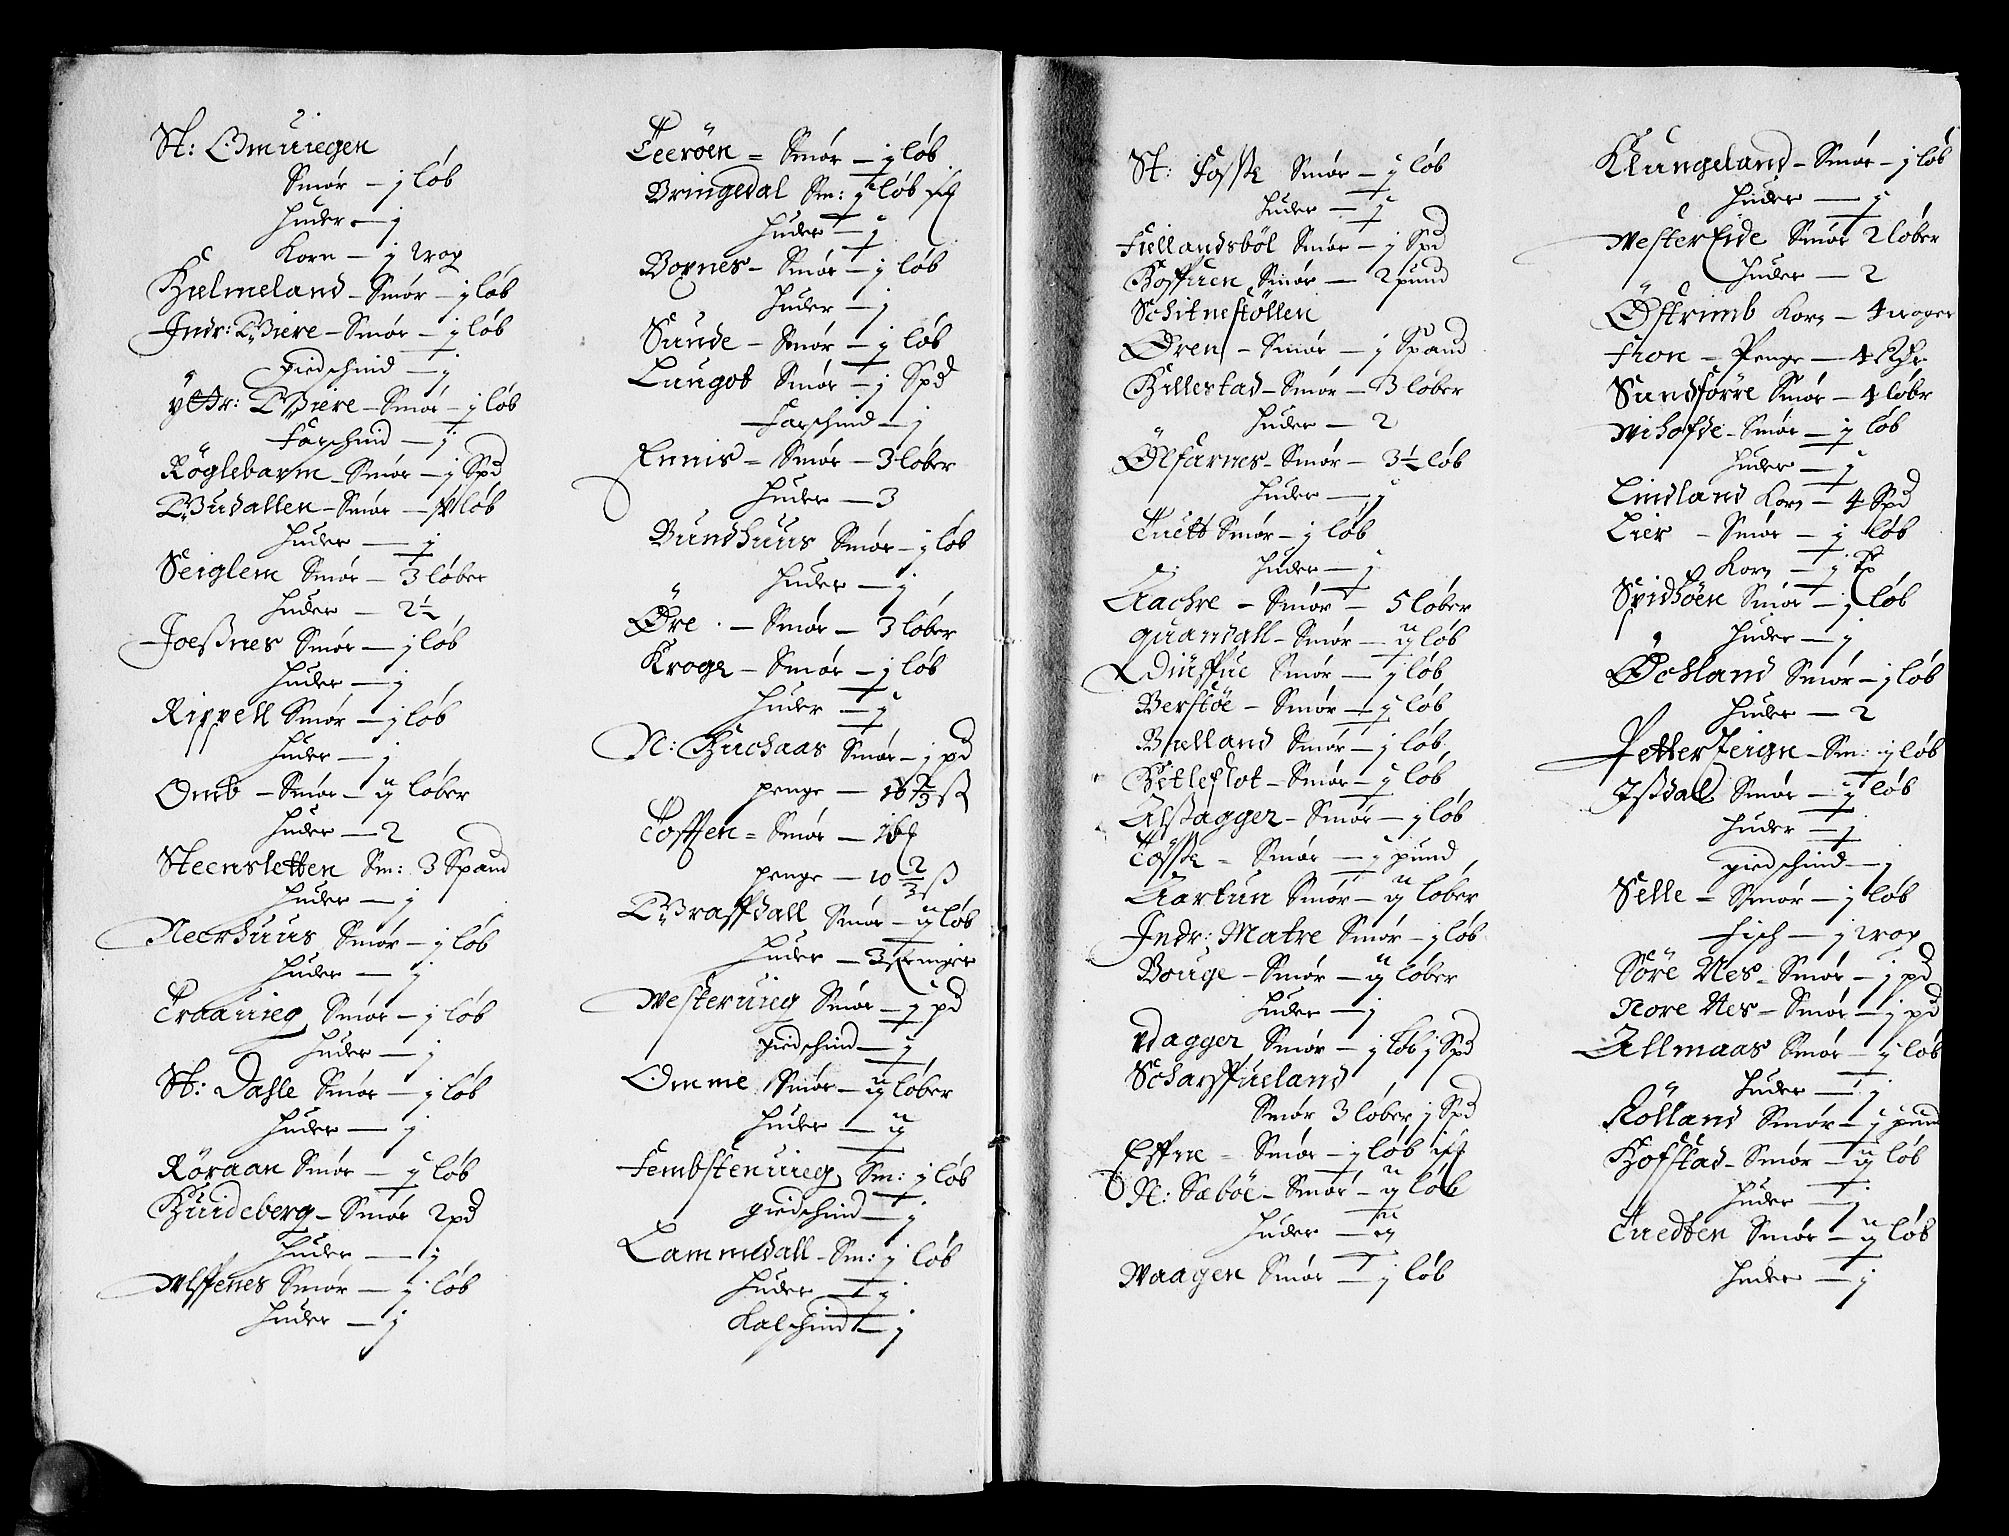 St: Omuiegen
Smør — j løb
Huder — j
Korn — j wog
Hielmeland - Smør - j løb
Indr: Giere - Smør - j løb
giedschind — j
yttr: Giere - Smør - j løb
Faarschind — j
Røglebarm - Smør - j Spd
Gudallen - Smør — løb
Huder — j
Seiglem Smør — 3 løber
Huder — 2½
Joeßnes Smør — j løb
Huder — j
Rippell Smør — j løb
Huder — j
Omb - Smør - ij løber
Huder — 2
Steensletten Sm: 3 Spand
Huder — j
Neerhuus Smør — j løb
Huder — j
Traauieg Smør — j løb
Huder — j
St: Dahle Smør — j løb
Huder — j
Røraan Smør — j løb
Huideberg - Smør 2 pd
Huder — j
wlffenes Smør — j løb
Huder — j
Teerøen = Smør — j løb
Bringedal Sm: j løb
Huder — j
Bornes - Smør — j løb
Huder — j
Sunde - Smør — j løb
Lungot Smør — j Spd
Faarschind — j
Ennis = Smør — 3 løber
Huder — 3
Bundhuus Smør — j løb
Huder — j
Øre - Smør — 3 løber
Kroge - Smør — j løb
Huder — j
N: Huchaas Smør — j pd
penge — ß
Toffen = Smør —
penge — 10 2/3 ß
Graffdall Smør — ij løb
Huder — 3
westeruieg Smør — j pd
giedschind — j
Omme Smør — ij løber
Huder — ij
Fembstenuieg Sm: j løb
giedschind — j
Lammedall - Sm: j løb
Huder — j
Kalschind — j
St: Fosse Smør — j løb
Huder — j
Fiellandsbøl Smør — j Spd
Hoffuen Smør — 2 pund
Schitnestøllen
Øren - Smør — j Spand
Hillestad - Smør — 3 løber
Huder — 2
Ølfarnes - Smør — 3½ løb
Huder — j
Tuett Smør — j løb
Huder — j
Aachre - Smør — 5 løber
quamdall - Smør — ij løb
Smør — j løb
Berstøe - Smør — j løb
Bielland Smør — j løb
Hetleflot - Smør — j løb
Aßagger - Smør — j løb
Tosse - Smør — j pund
Aartun Smør — ij løber
Indr: Matre Smør — j løb
Bouge - Smør — ij løber
Huder — j
vdagger Smør — j løb j Spd
Scharffueland
Smør 3 løber j Spd
Effne - Smør — j løb
N: Sæbøe - Smør — ij løb
Huder — ij
Waagen Smør — j løb
Klungeland - Smør — j løb
Huder — j
westerEide Smør 2 løber
Huder — 2
Østrimb Korn — 4 woger
Fron = Penge — 4
Sundførre Smør — 4 løbr
wihofde - Smør — j løb
Huder — j
Lindland Korn — 4 Spd
Lier - Smør — j løb
Korn — j
Smør — j løb
Huder — j
Øchland Smør — j løb
Huder — 2
PetterTeign - Sm: ij løb
Ißdal Smør — j løb
Huder — j
giedschind — j
Selle - Smør — j løb
Fisch — j wog
Søre Nes = Smør — j pd
Nore Nes = Smør — j pd
Allmaas Smør — j løb
Huder — j
Rølland Smør — j pund
Hofstad - Smør — ij løb
Huder — j
Tuedten Smør — ij løb
Huder — j